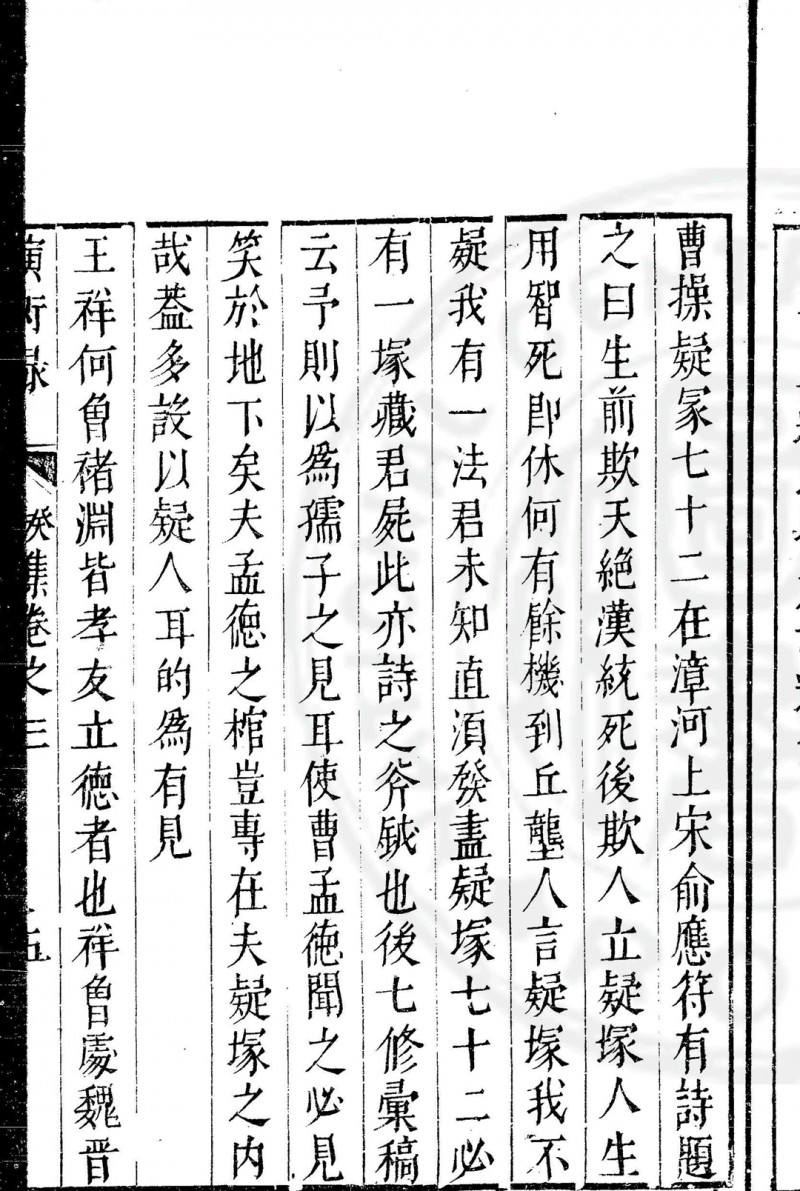 曹操疑冢七十二在漳河上宋俞應符有詩題
之曰生前欺天絕漢統死後欺人立疑塚人生
用智死即休何有餘機到丘壟人言疑塚我不
疑我有一法君未知直湏發盡疑塚七十二必
有一塚藏君屍此亦詩之斧鉞也後七修彙稿
云予則以為孺子之見耳使曹孟德聞之必見
笑於地下矣夫孟德之棺豈專在夫疑塚之内
哉葢多設以疑人耳的為有見
王祥何魯禇淵皆孝友立德者也祥魯處魏晉
癸集卷之三